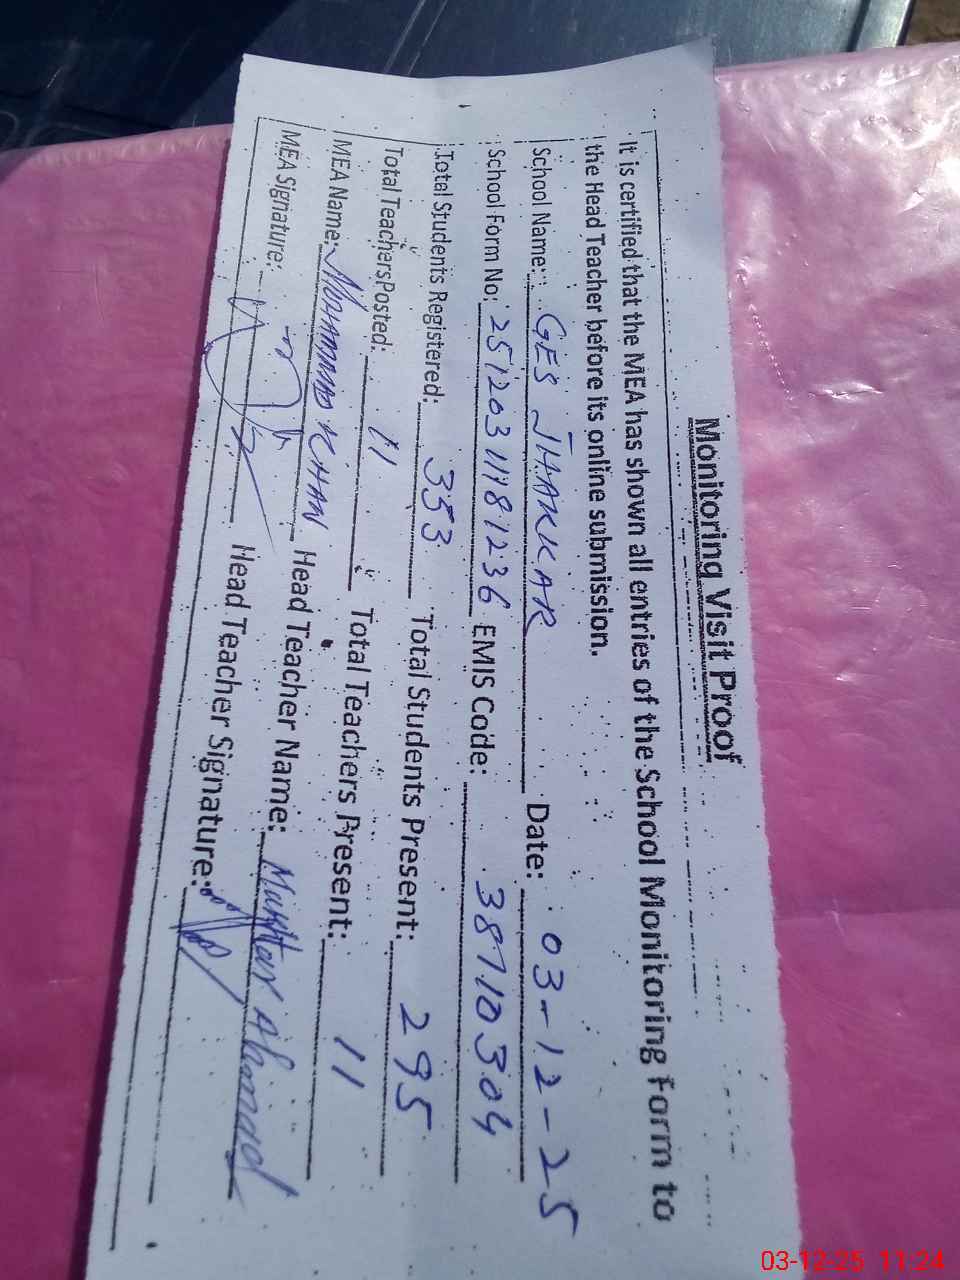 Monitoring Visit Proof
It is certified that the MEA has shown all entries of the School Monitoring Form to
the Head Teacher before its online submission.
School Name: GES JHAKKAR Date: 03-12-25
School Form No: 251203 EMIS Code: 38710304
Total Students Registered: 353 Total Students Present: 295
Total Teachers Posted: 11 Total Teachers Present: 11
MEA Name: MUHAMMAD KHAN Head Teacher Name: Mukhtar Ahmad
MEA Signature: Head Teacher Signature:
03-12-25 11:24